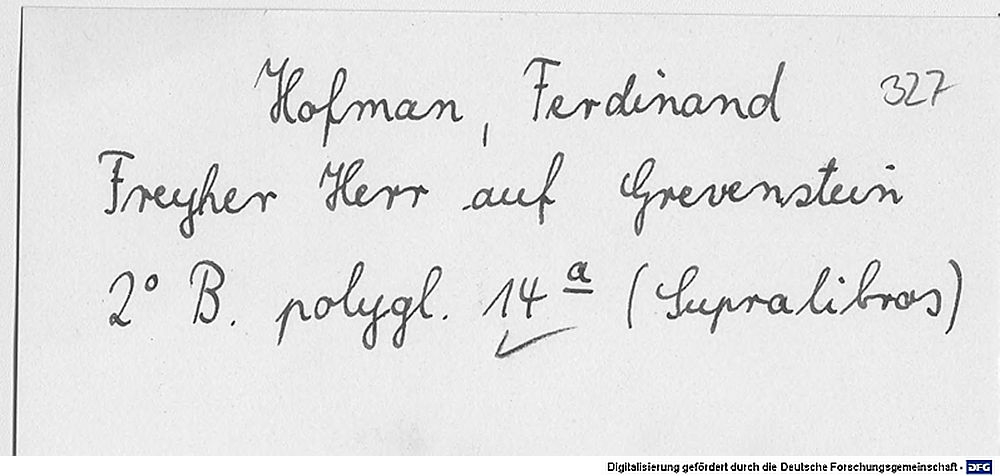 Hofman, Ferdinand 327
Freyher Herr auf Grevenstein
2° B. polygl. 14 a (Supralibros)
Digitalisierung gefördert durch die Deutsche Forschungsgemeinschaft - DFG